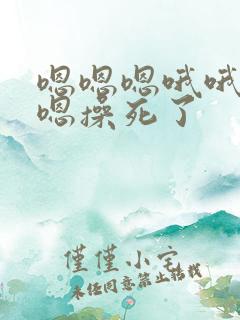 嗯嗯嗯哦哦
嗯操死了
僅僅小宅
未经同意禁止转载